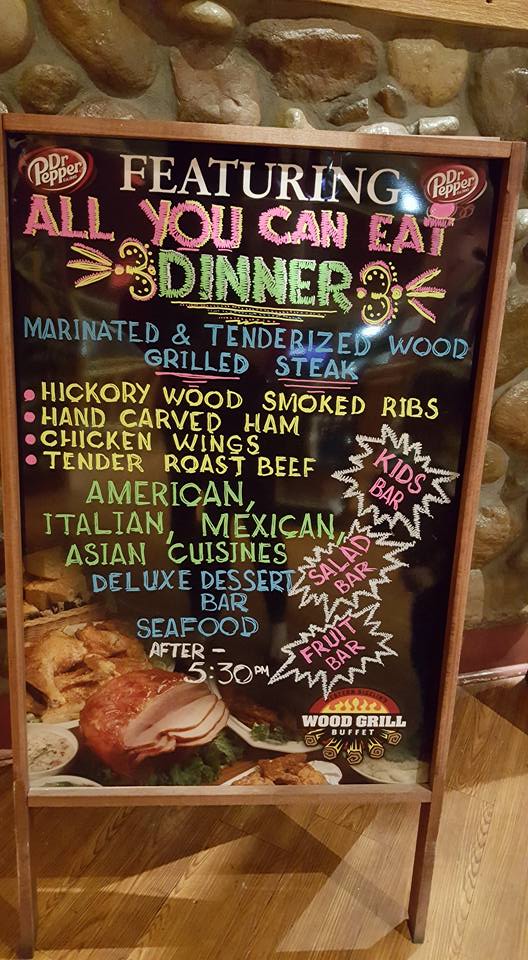 Dr Pepper
Dr Pepper
FEATURING
ALL YOU CAN EAT
DINNER
MARINATED & TENDERIZED WOOD
GRILLED STEAK
• HICKORY WOOD SMOKED RIBS
• HAND CARVED HAM
• CHICKEN WINGS
• TENDER ROAST BEEF
KIDS
BAR
AMERICAN,
ITALIAN, MEXICAN,
ASIAN CUISINES
SALAD
BAR
DELUXE DESSERT
BAR
SEAFOOD
AFTER -
5:30 PM
FRUIT
BAR
WOOD GRILL
BUFFET